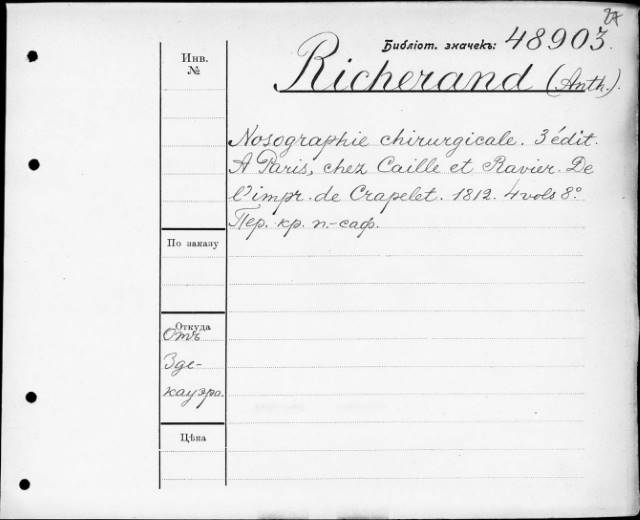 27
Библіот. значекъ: 48903.
Инв.
№
Richerand (Anth.).
Nosographie chirurgicale. 3 édit.
A Paris, chez Caille et Ravier. De
l'impr. de Crapelet. 1812. 4 vols 8°.
Пер. кр. п.-саф.
По заказу
Откуда
Отъ
Зде-
кауэра.
Цѣна